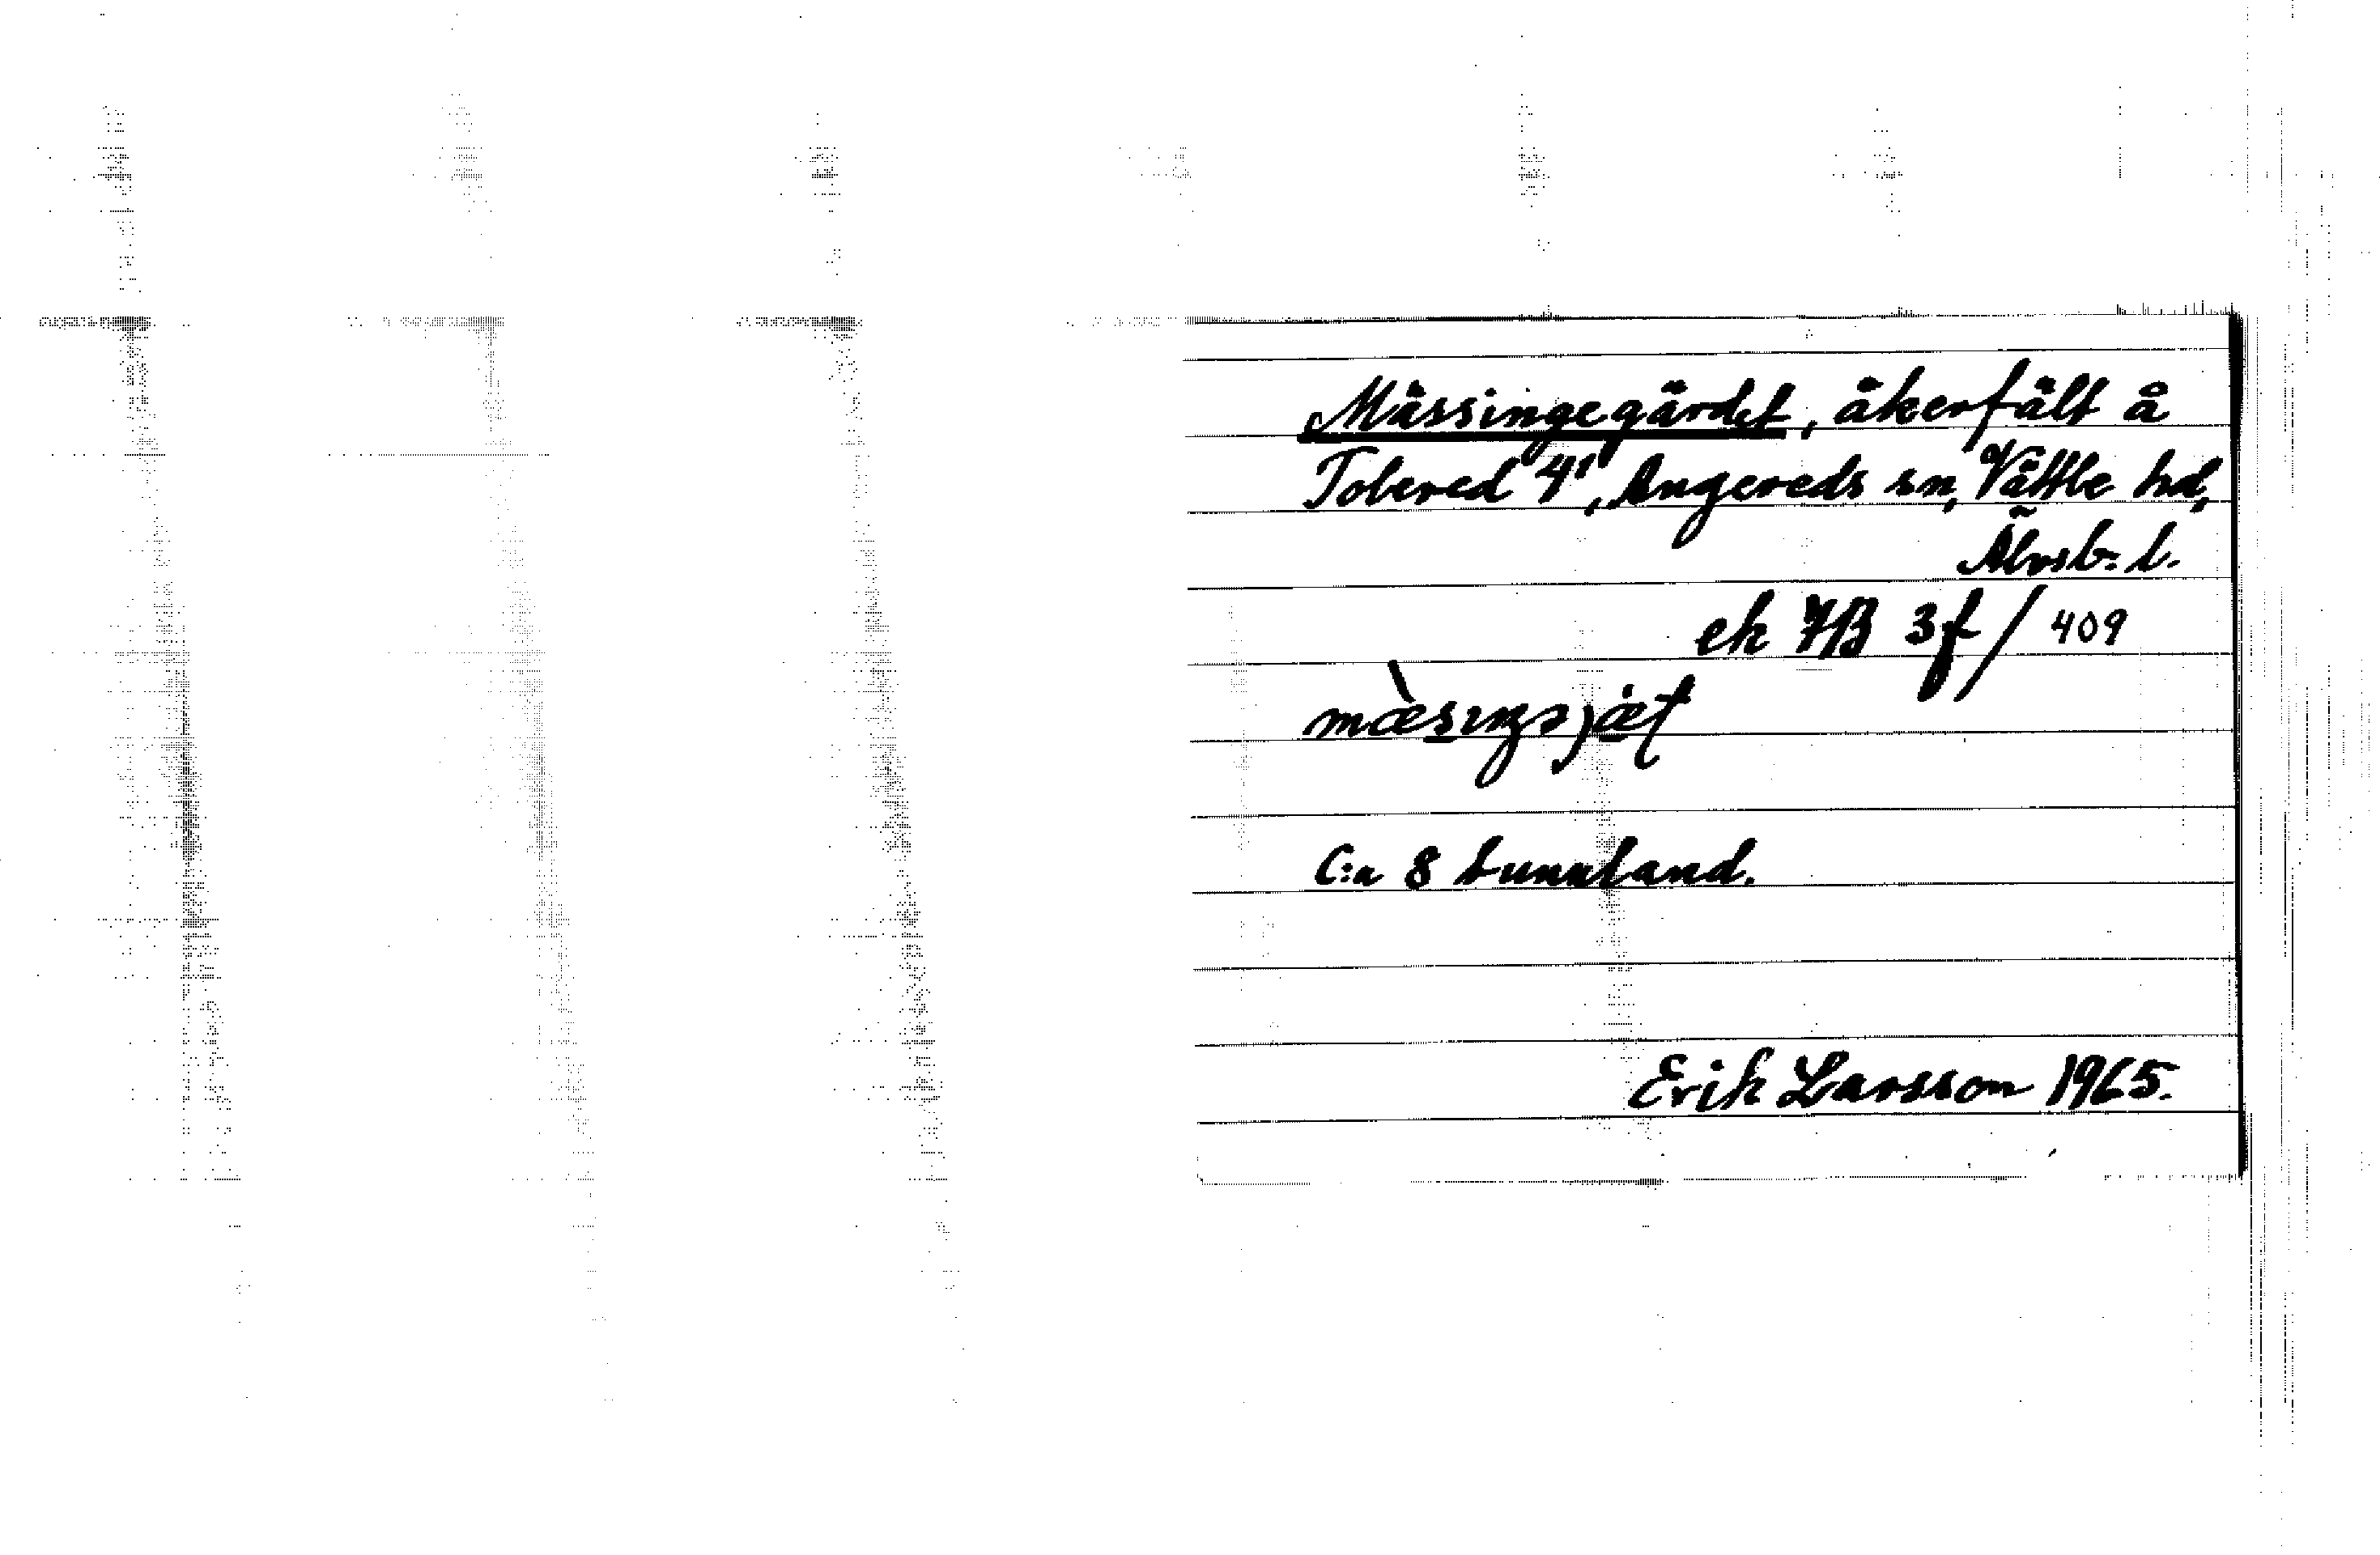 Mässingegärdet, åkerfält å
Tobered 4¹, Angereds sn, Vättle hd,
Älvsb. l.
ek 7B 3f / 409
C:a 8 tunnland.
Erik Larsson 1965.